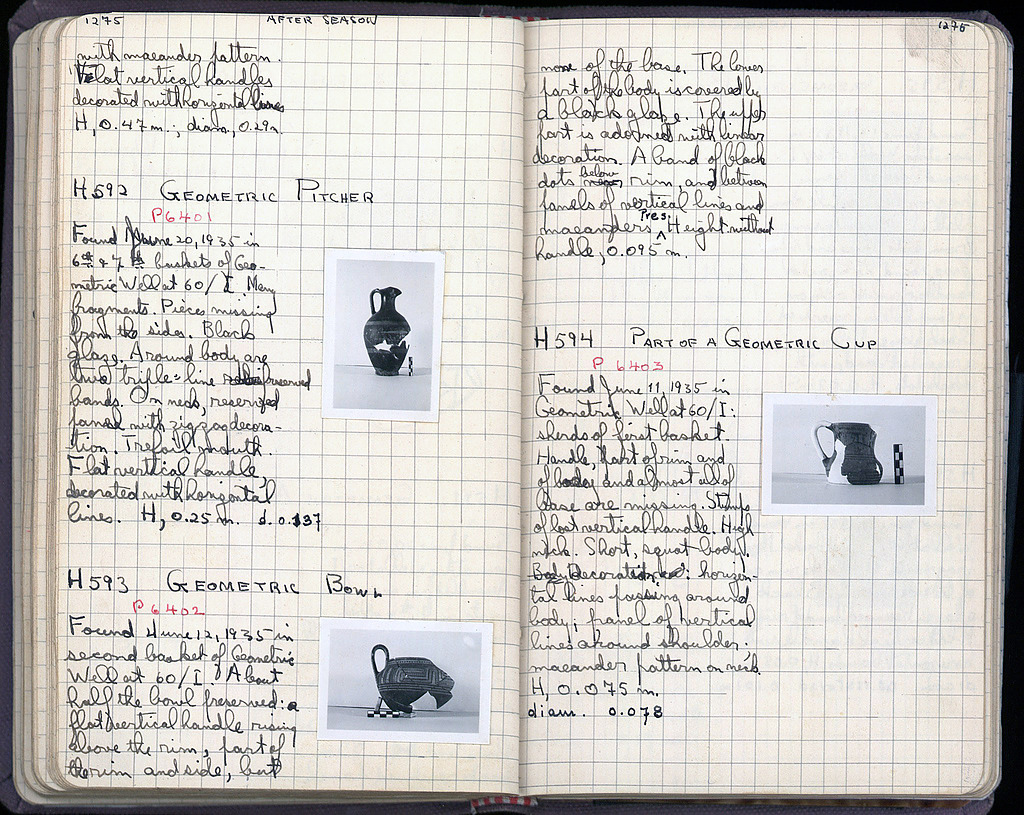 1275 AFTER SEASON
with maeander pattern.
Flat vertical handles
decorated with horizontal lines
H, 0.47 m.; diam, 0.29m.
H592 GEOMETRIC PITCHER
P6401
Found June 20, 1935 in
6th & 7th baskets of Geo-
metric Well at 60/I. Many
fragments. Pieces missing
from the sides. Black
glaze. Around body are
three triple-line reserved
bands. On neck, reserved
panel with zigzag decora-
tion. Trefoil mouth.
Flat vertical handle,
decorated with horizontal
lines. H, 0.25 m. d. 0.137
H593 GEOMETRIC BOWL
P 6402
Found June 12, 1935 in
second basket of Geometric
Well at 60/I. About
half the bowl preserved: a
flat vertical handle rising
above the rim, part of
the rim and side, but
1275
none of the base. The lower
part of the body is covered by
a black glaze. The upper
part is adorned with linear
decoration. A band of black
dots below rim, and between
panels of vertical lines and
maeanders. Pres. Height without
handle, 0.095 m.
H594 PART OF A GEOMETRIC CUP
P 6403
Found June 11, 1935 in
Geometric Well at 60/I:
sherds of first basket.
Handle, part of rim and
of body and almost all of
base are missing. Stumps
of lost vertical handle. High
neck. Short, squat body.
Decoration: horizon-
tal lines passing around
body; panel of vertical
lines around shoulder;
maeander pattern on neck.
H, 0.075 m.
diam. 0.078